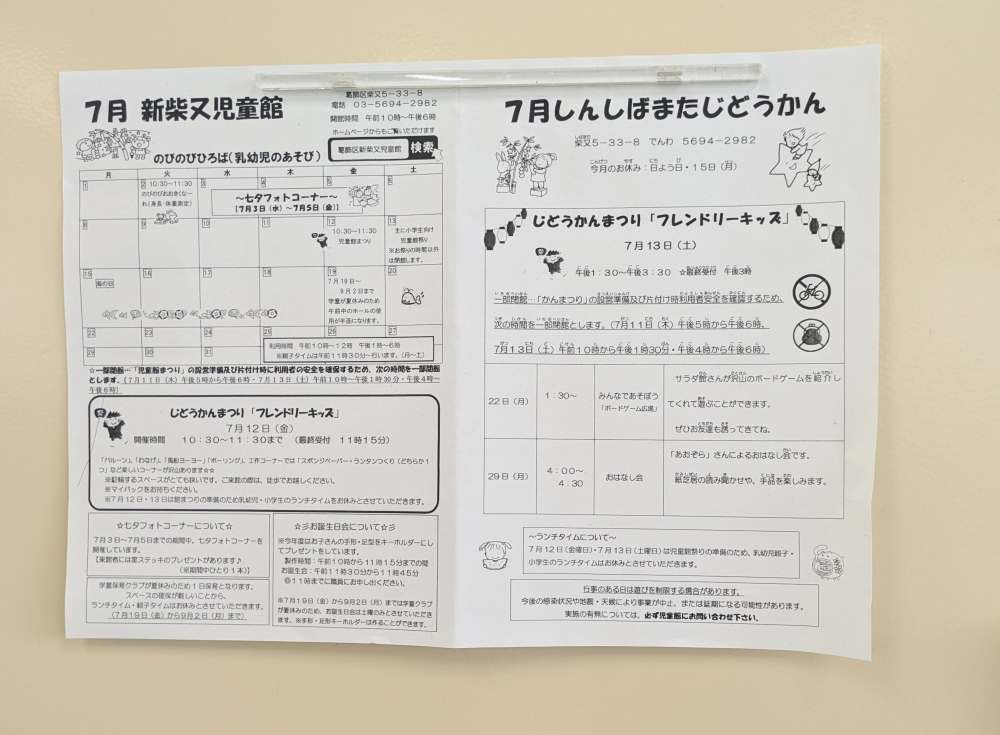 7月 新柴又児童館
葛飾区柴又5-33-8
電話 03-5694-2982
開館時間 午前10時～午後6時
ホームページからもご覧いただけます
葛飾区新柴又児童館 検索
のびのびひろば(乳幼児のあそび)
月 火 水 木 金 土
1 2 3 4 5 6
10:30～11:30
のびのびおおきくなーれ(身長・体重測定)
～七夕フォトコーナー～
【7月3日(水)～7月5日(金)】
8 9 10 11 12 13
10:30～11:30
児童館まつり
主に小学生向け
児童館祭り
※お祭りの時間以外は閉館します。
15 16 17 18 19 20
海の日
7月19日～
9月2日まで
学童が夏休みのため
午前中のホールの使用が半面になります。
22 23 24 25 26 27
29 30 31
利用時間 午前10時～12時 午後1時～6時
※親子タイムは午前11時30分～行います。(月～土)
☆一部閉館…「児童館まつり」の設営準備及び片付け時に利用者の安全を確保するため、次の時間を一部閉館
とします。(7月11日(木)午後5時から午後6時・7月13日(土)午前10時～午後1時30分・午後4時～
午後6時)
じどうかんまつり「フレンドリーキッズ」
7月12日(金)
開催時間 10:30～11:30まで (最終受付 11時15分)
「バルーン」、「わなげ」、「風船ヨーヨー」「ボーリング」、工作コーナーでは「スポンジペーパー・ランタンつくり(どちらか1
つ)など楽しいコーナーが沢山あります☆☆
※駐輪するスペースがとても狭いです。ご来館の際は、徒歩でお越しください。
※マイバックをお持ちください。
※7月12日・13日は館まつりの準備のため乳幼児・小学生のランチタイムをお休みとさせていただきます。
☆七夕フォトコーナーについて☆
7月3日～7月5日までの期間中、七夕フォトコーナーを
開催しています。
【来館者には星ステッキのプレゼントがあります♪
(※期間中ひとり1本)】
学童保育クラブが夏休みのため1日保育となります。
スペースの確保が難しいことから、
ランチタイム・親子タイムはお休みとさせていただきます。
(7月19日(金)から9月2日(月)まで)
☆彡お誕生日会について☆彡
※今年度はお子さんの手形・足型をキーホルダーにし
てプレゼントをしています。
製作時間:午前10時から11時15分までの間
お誕生会:午前11時30分から11時45分
◎11時までに職員にお申しください。
※7月19日(金)から9月2日(月)までは学童クラブ
が夏休みのため、お誕生日会は土曜のみとさせていただき
ます。※手形・足形キーホルダーは作ることができます。
7月しんしばまたじどうかん
柴又5-33-8 でんわ 5694-2982
今月のお休み:日よう日・15日(月)
じどうかんまつり「フレンドリーキッズ」
7月13日(土)
午後1:30～午後3:30 ☆最終受付 午後3時
一部閉館…「かんまつり」の設営準備及び片付け時利用者安全を確認するため、
次の時間を一部閉館とします。(7月11日(木)午後5時から午後6時、
7月13日(土)午前10時から午後1時30分・午後4時から午後6時)
22日(月) 1:30～ みんなであそぼう
「ボードゲーム広場」
サラダ館さんが沢山のボードゲームを紹介し
てくれて遊ぶことができます。
ぜひお友達も誘ってきてね。
29日(月) 4:00～
4:30
おはなし会
「あおぞら」さんによるおはなし会です。
紙芝居の読み聞かせや、手品を楽しみます。
～ランチタイムについて～
7月12日(金曜日)・7月13日(土曜日)は児童館祭りの準備のため、乳幼児親子・
小学生のランチタイムはお休みとさせていただきます。
行事のある日は遊びを制限する場合があります。
今後の感染状況や地震・天候により事業が中止、または延期になる可能性があります。
実施の有無については、必ず児童館にお問い合わせ下さい。